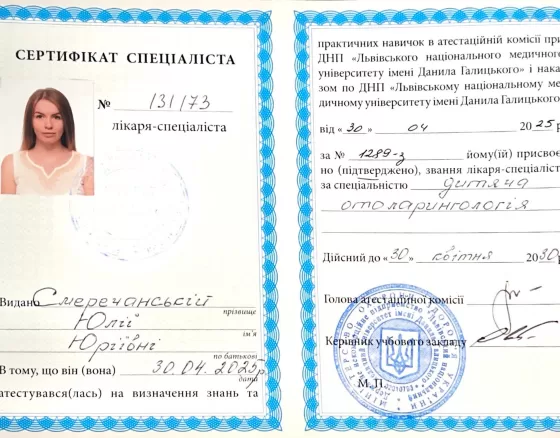 СЕРТИФІКАТ СПЕЦІАЛІСТА
№ 131/73
лікаря-спеціаліста
Видано Смеречанській
прізвище
Юлії
ім'я
Юріївні
по батькові
В тому, що він (вона) 30.04.2025р
дата
атестувався(лась) на визначення знань та
практичних навичок в атестаційній комісії при
ДНП «Львівського національного медичного
університету імені Данила Галицького» і нака
зом по ДНП «Львівському національному ме
дичному університету імені Данила Галицького
від «30» 04 2025р
за № 1289-з йому(їй) присвоє
но (підтверджено), звання лікаря-спеціаліст
за спеціальністю дитяча
отоларингологія
Дійсний до «30» квітня 2030р
Голова атестаційної комісії
Керівник учбового закладу
М. П.